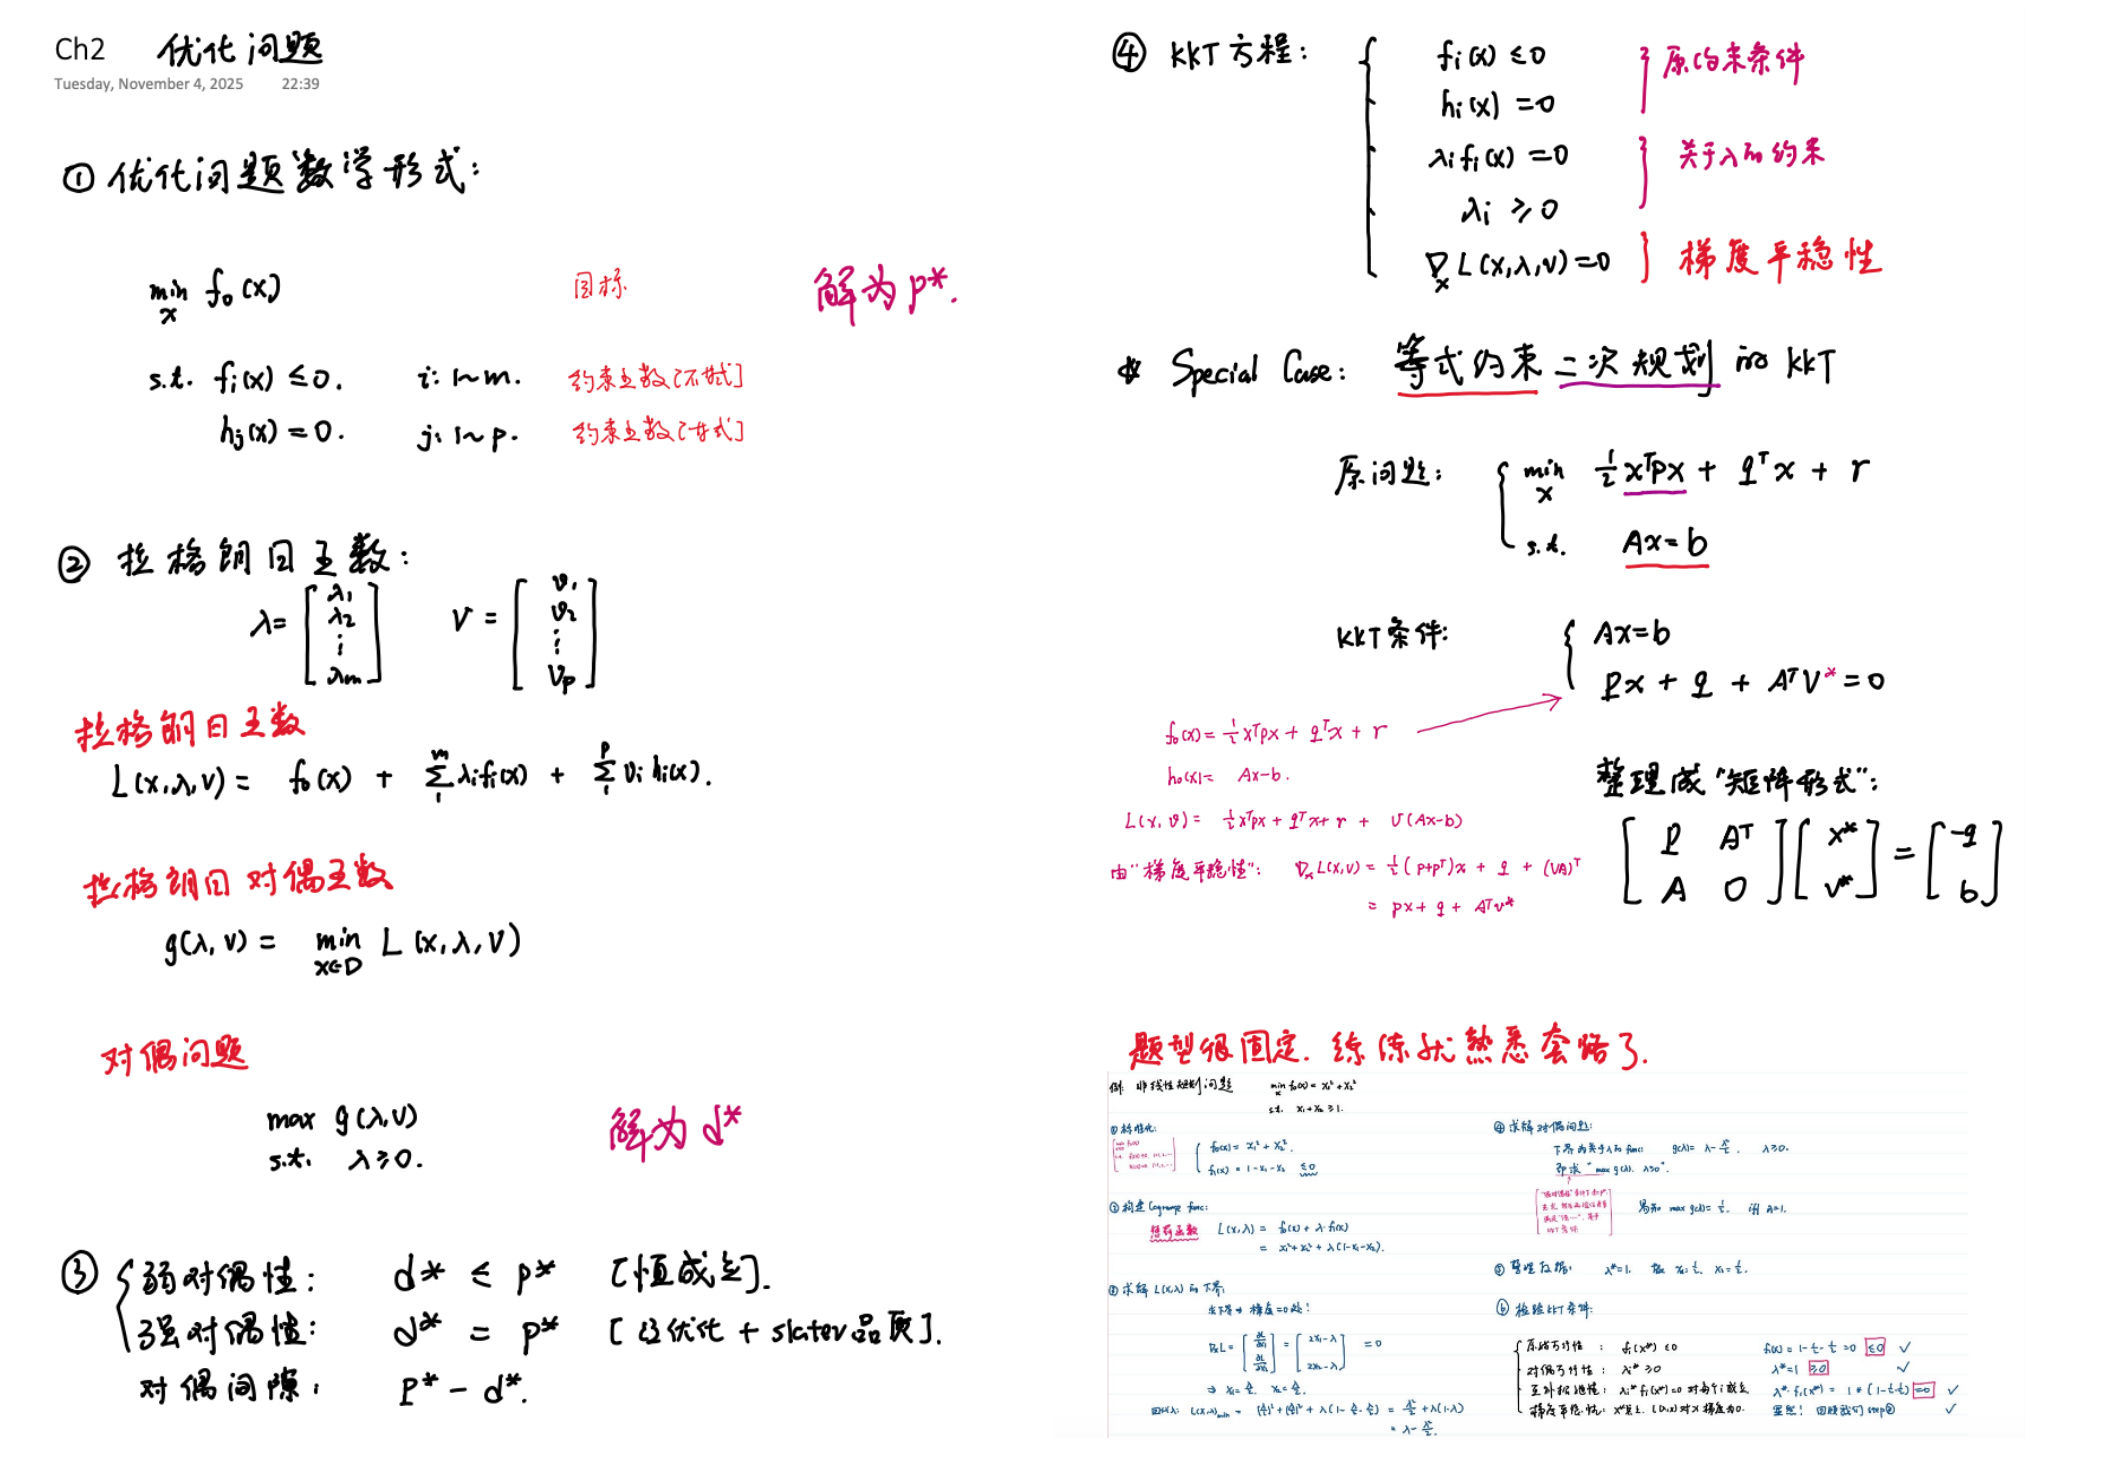 Ch2 优化问题
Tuesday, November 4, 2025 22:39
① 优化问题数学形式:
min f₀(x) 目标 解为 p*.
x
s.t. fᵢ(x) ≤0. i: 1~m. 约束函数[不等式]
hⱼ(x) =0. j: 1~p. 约束函数[等式]
② 拉格朗日函数:
λ= [λ₁ λ₂ ⋮ λm] V = [v₁ v₂ ⋮ vp]
拉格朗日函数
L(x,λ,v) = f₀(x) + Σ₁ᵐ λᵢfᵢ(x) + Σ₁ᵖ vᵢhᵢ(x).
拉格朗日对偶函数
g(λ,v) = min L(x,λ,v)
x∈D
对偶问题
max g(λ,v) 解为 d*
s.t. λ≥0.
③ 弱对偶性: d* ≤ p* [恒成立].
强对偶性: d* = p* [凸优化 + slater品质].
对偶间隙: p* - d*.
④ KKT方程: fᵢ(x) ≤0 } 原约束条件
hᵢ(x) =0
λᵢfᵢ(x) =0 } 关于λ的约束
λᵢ ≥0
∇ₓL(x,λ,v)=0 } 梯度平稳性
☆ Special Case: 等式约束二次规划的KKT
原问题: min ½xᵀPx + qᵀx + r
x
s.t. Ax=b
KKT条件: Ax=b
Px + q + AᵀV* =0
f₀(x) = ½xᵀPx + qᵀx + r
h₀(x)= Ax-b.
L(x, v) = ½xᵀPx + qᵀx + r + v(Ax-b)
由"梯度平稳性": ∇ₓL(x,v) = ½(P+Pᵀ)x + q + (VA)ᵀ
= Px + q + Aᵀv*
整理成"矩阵形式":
[P Aᵀ; A 0][x*; v*] = [-q; b]
题型很固定. 练练就熟悉套路了.
例: 非线性规划问题 min f₀(x) = x₁²+x₂²
x
s.t. x₁+x₂ ≥1.
① 标准化:
f₀(x) = x₁²+x₂².
f₁(x) = 1-x₁-x₂ ≤0
② 构建Lagrange func:
L(x,λ) = f₀(x) + λ·f₁(x)
= x₁²+x₂²+λ(1-x₁-x₂).
③ 求解L(x,λ)的下界:
求下界⇒梯度=0处!
∇ₓL = [∂L/∂x₁; ∂L/∂x₂] = [2x₁-λ; 2x₂-λ] =0
⇒ x₁=λ/2. x₂=λ/2.
回代入: L(x,λ)min = (λ/2)²+(λ/2)²+λ(1-λ/2-λ/2) = λ²/2+λ(1-λ)
= λ-λ²/2.
④ 求解对偶问题:
下界为关于λ的func: g(λ)= λ-λ²/2. λ≥0.
即求 "max g(λ). λ≥0".
易知 max g(λ)=½. 则 λ=1.
λ*=1. 故 x₂=½. x₁=½.
⑥ 检验KKT条件:
原始可行性: fᵢ(x*) ≤0 f₁(x) = 1-½-½=0 ≤0 ✓
对偶可行性: λᵢ* ≥0 λ*=1 ≥0 ✓
互补松弛性: λᵢ* fᵢ(x*)=0 对每个i成立 λ*·f₁(x*) = 1*(1-½-½) =0 ✓
梯度平稳性: x*处上. L(x,λ)对x梯度为0. 显然! 回顾我们step③ ✓